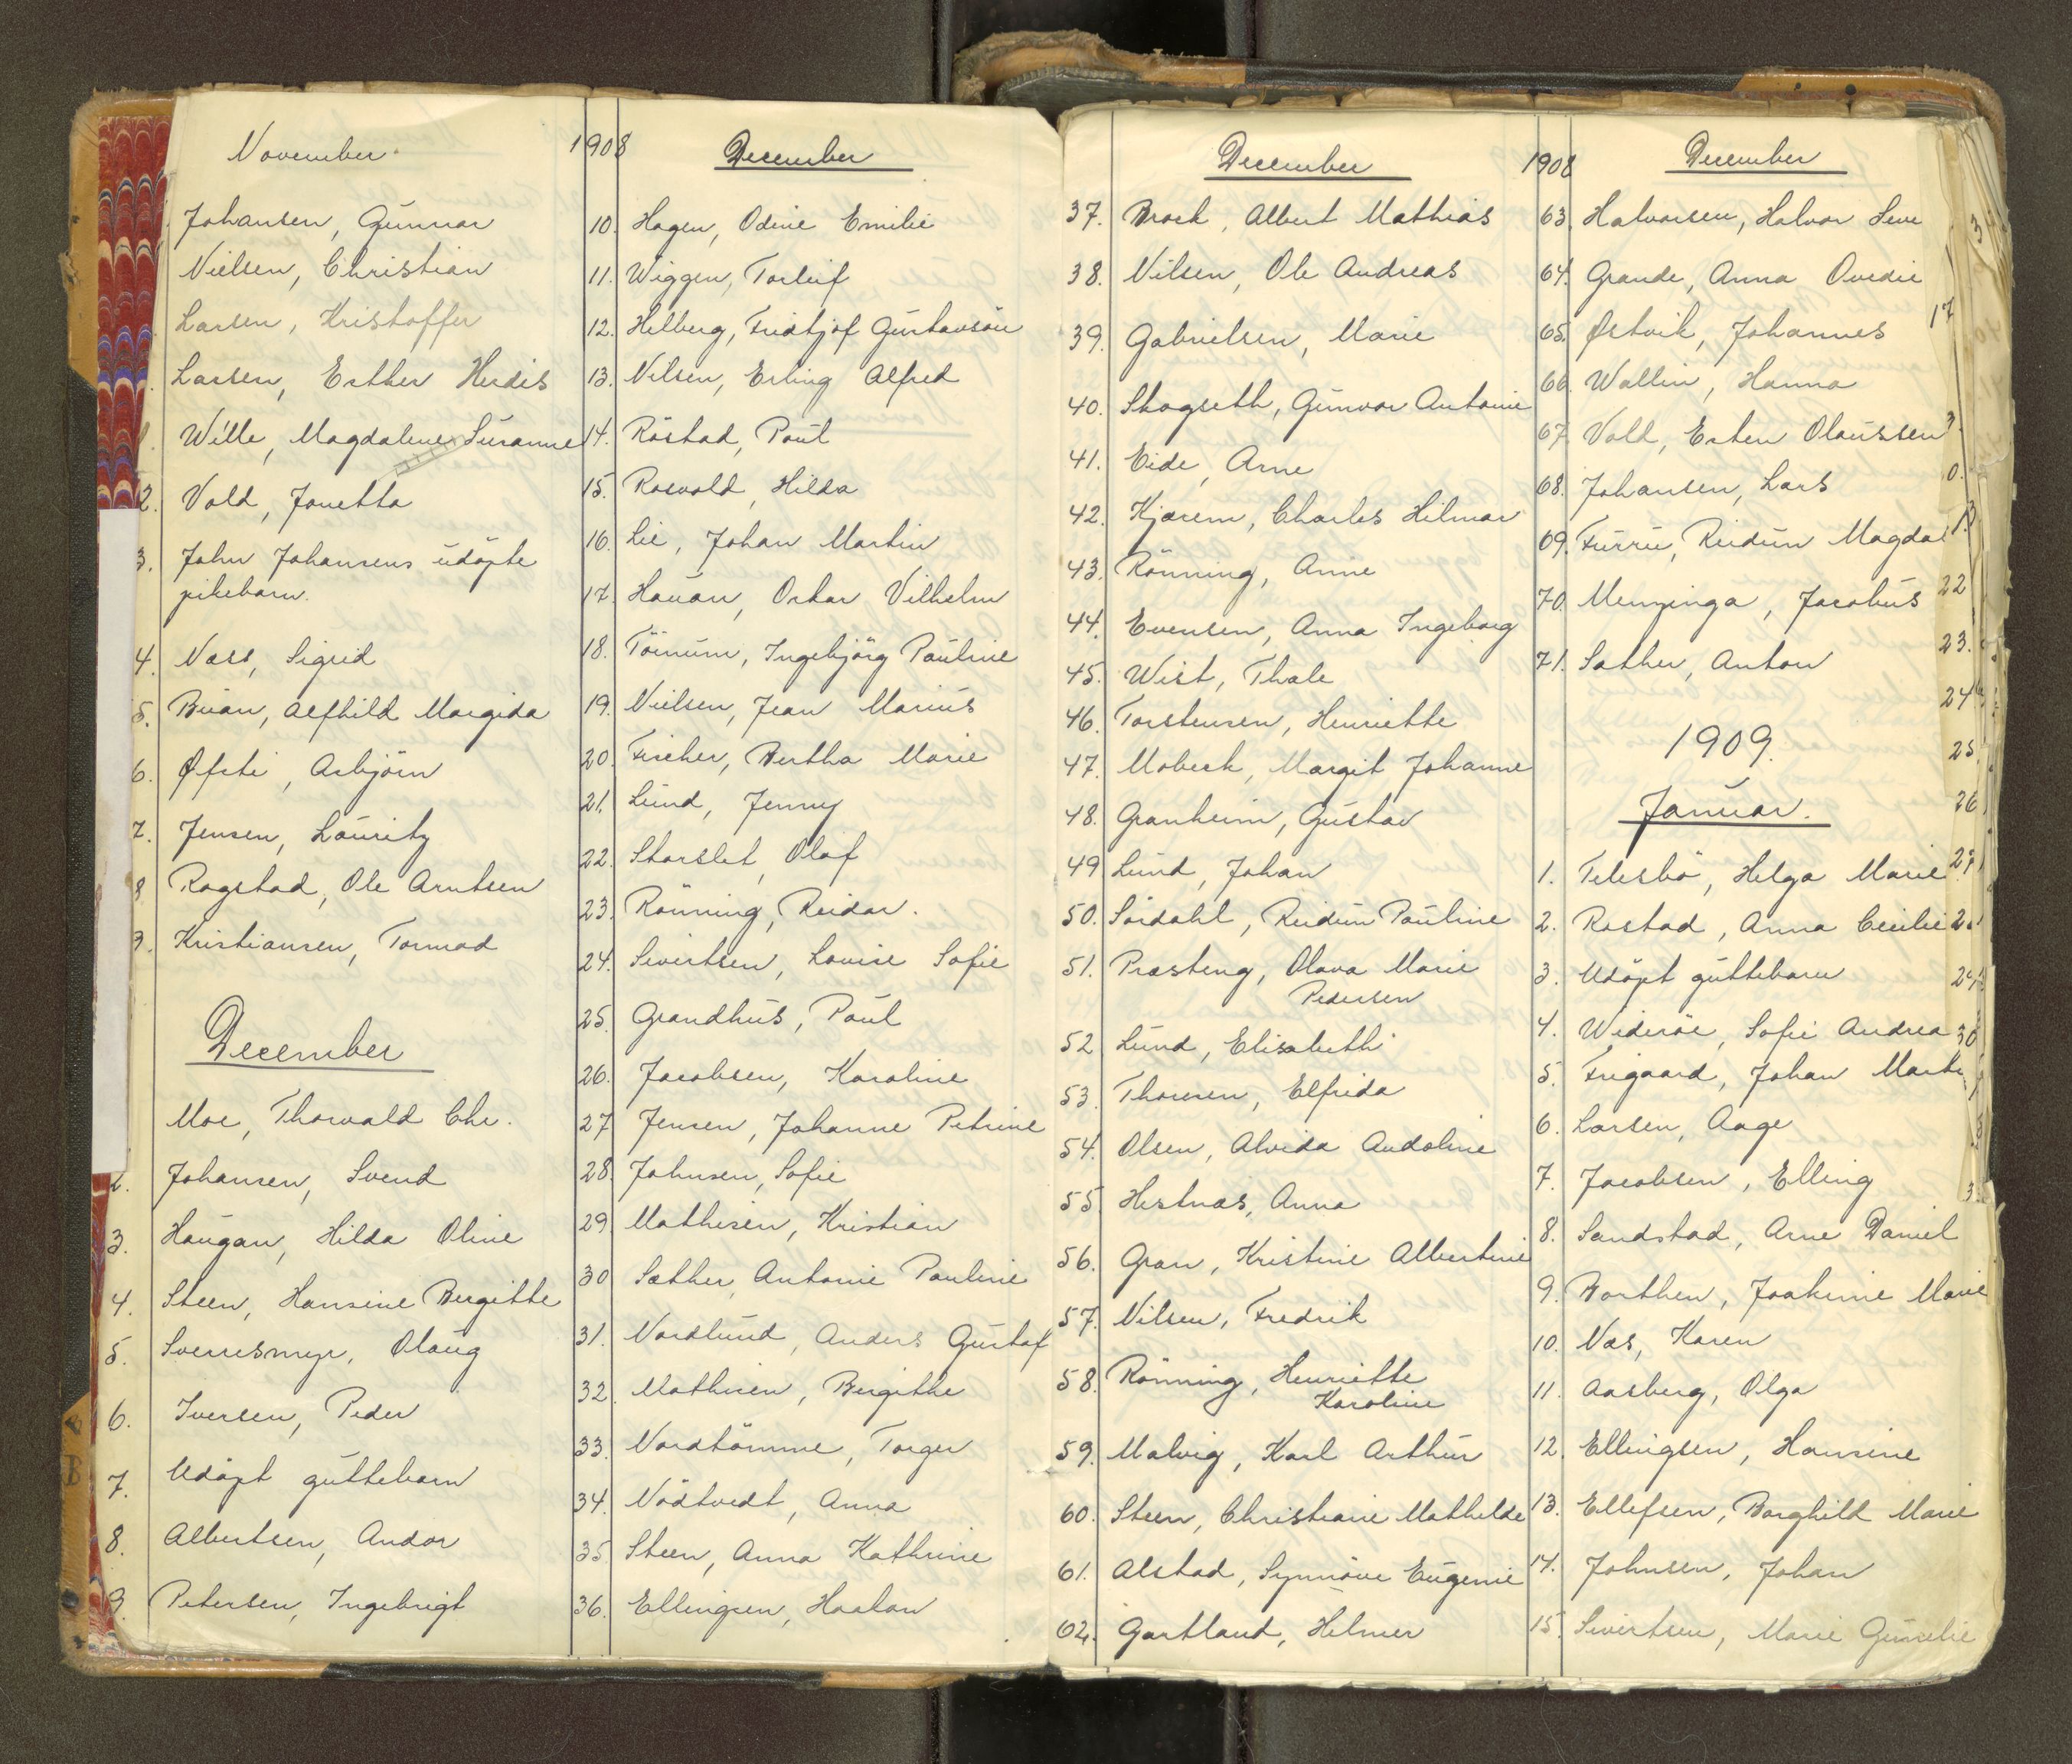 November 1908
Johansen, Gunnar
Nielsen, Christian
Larsen, Kristoffer
Larsen, Esther Herdis
Wille, Magdalene Susanne
2. Vold, Jonetta
3. John Johansens udøpte
pikebarn.
4. Næss, Sigrid
5. Buan, Alfhild Margida
6. Øfsti, Asbjörn
7. Jensen, Lauritz
8 Ragstad, Ole Arntsen
9. Kristiansen, Tormod
December
Moe, Thorvald Chr.
2. Johansen, Svend
3. Haugan, Hilda Oline
4. Steen, Hansine Bergitte
5. Sverresmyr, Olaug
6. Iversen, Peder
7. Udöpt guttebarn
8. Albertsen, Andor
9. Petersen, Ingebrigt
December
10. Hagen, Odine Emilie
11. Wiggen, Torleif
12. Helberg, Fridtjof Gustavsön
13. Nilsen, Erling Alfred
14. Röstad, Paul
15. Rosvold, Hilda
16. Lie, Johan Martin
17. Hauan, Oskar Vilhelm
18. Töinum, Ingebjörg Pauline
19. Nielsen, Jean Marius
20. Fischer, Bertha Marie
21. Lund, Jenny
22. Storslet, Olaf
23. Rönning, Reidar.
24. Sivertsen, Lovise Sofie
25. Grandhus, Paul
26. Jacobsen, Karoline
27 Jensen, Johanne Petrine
28. Johnsen, Sofie
29. Mathisen, Kristian
30 Sæther, Antonie Pauline
31. Nordlund, Anders Gustaf
32. Mathisen, Bergithe
33. Nordtömme, Torger
34. Nödtvedt, Anna
35 Steen, Anna Kathrine
36. Ellingsen, Haakon
December 1908
37. Brock, Albert Mathias
38. Nilsen, Ole Andreas
39. Gabrielsen, Marie
40. Skogseth, Gunvor Antonie
41. Eide, Arne
42. Kjærem, Charles Hilmar
43. Rönning, Anne
44. Evensen, Anna Ingeborg
45. Wist, Thale
46. Torstensen, Henriette
47. Mobeck, Margit Johanne
48. Granheim, Gustav
49 Lund, Johan
50. Sördahl, Reidun Pauline
51. Præsteng, Olava Marie
Pedersen
52 Lund, Elisabeth
53. Thoresen, Elfrida
54. Olsen, Alvida Andoline
55 Hestnæs, Anna
56. Gran, Kristine Albertine
57. Nilsen, Fredrik
58. Rönning, Henriette
Karoline
59. Malvig, Karl Arthur
60. Steen, Christiane Mathilde
61. Alstad, Synnöve Eugenie
62. Gartland, Helmer
December
63. Halvorsen, Halvor
64. Grande, Anna Ovedie
65. Østvik, Johannes
66. Wallin, Hanna
67. Vold, Esten Olaussen
68. Johansen, Lars
69. Furru, Reidun Magda
70. Menzinga, Jacobus
71. Sæther, Anton
1909.
Januar.
1. Telesbö, Helga Marie
2. Rostad, Anna Cecilie
3. Udöpt guttebarn
4. Wideröe, Sofie Andrea
5. Frigaard, Johan
6. Larsen, Aage
7. Jacobsen, Elling
8. Sandstad, Arne Daniel
9. Borthen, Joakime Marie
10. Næs, Karen
11. Aasberg, Olga
12. Ellingsen, Hansine
13. Ellefsen, Borghild Marie
14. Johnsen, Johan
15. Sivertsen, Marie
17
22
23.
24
25
26
27
30